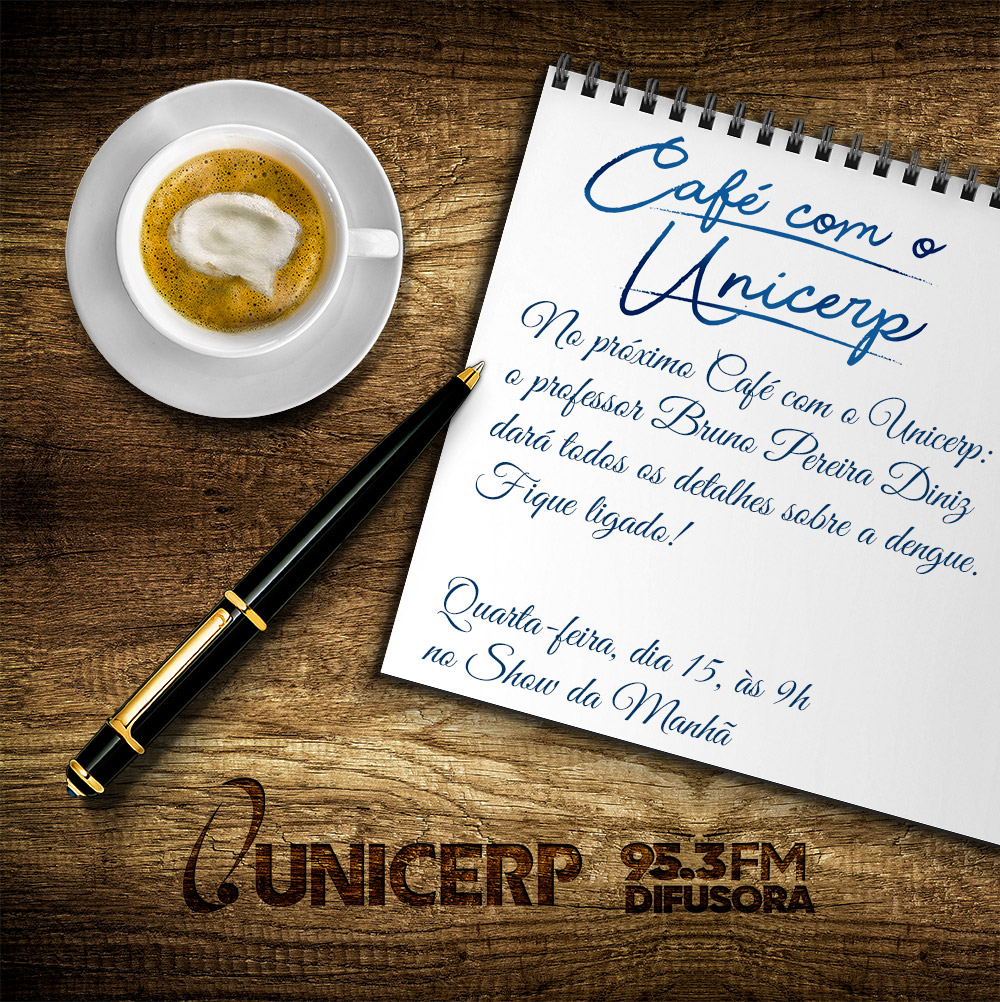 Café com o
Unicerp
No próximo Café com o Unicerp:
o professor Bruno Pereira Diniz
dará todos os detalhes sobre a dengue.
Fique ligado!
Quarta-feira, dia 15, às 9h
no Show da Manhã
UNICERP
95.3 FM
DIFUSORA